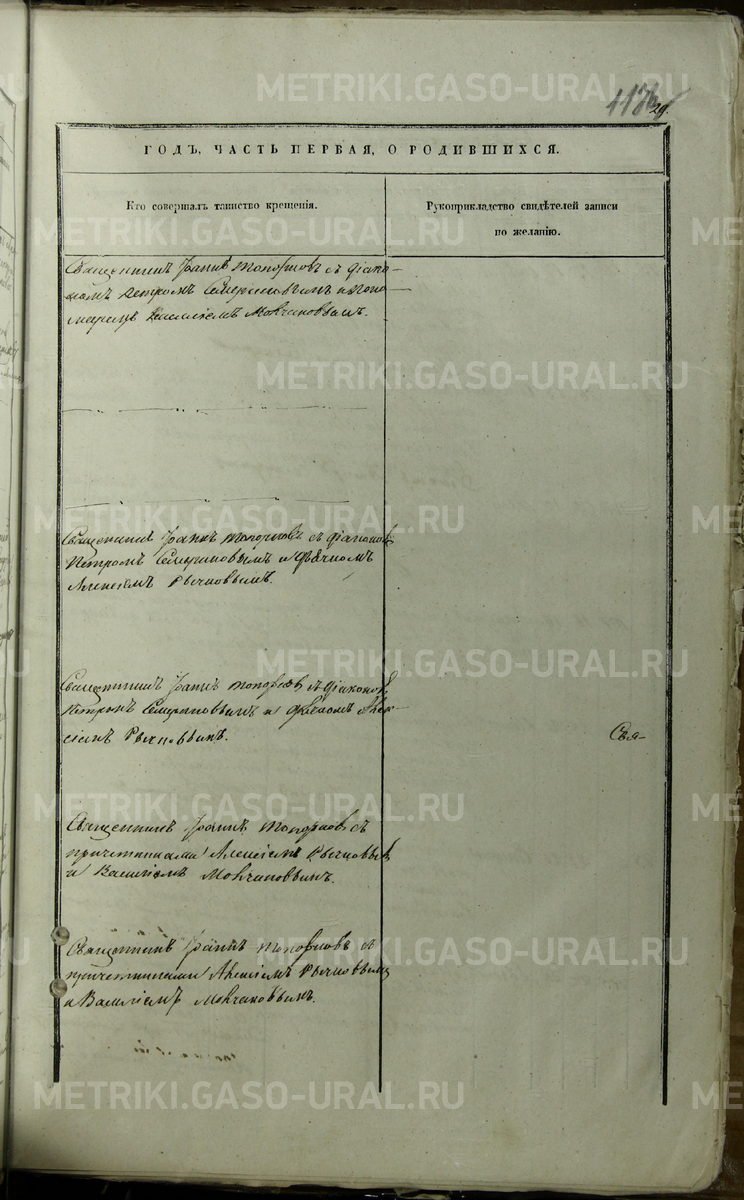 METRIKI.GASO-URAL.RU
29.
ГОДЪ, ЧАСТЬ ПЕРВАЯ, О РОДИВШИХСЯ.
Кто совершалъ таинство крещенія.
Рукоприкладство свидѣтелей записи
по желанію.
Священникъ Іоаннъ Топорковъ съ діако-
номъ Петромъ и поно-
маремъ Василіемъ Молчановымъ.
Священникъ Іоаннъ Топорковъ съ діакономъ
Петромъ и дьячкомъ
Алексѣемъ Рычковымъ.
Священникъ Іоаннъ Топорковъ съ діакономъ
Петромъ и дьячкомъ Алек-
сѣемъ Рычковымъ.
Свя-
Священникъ Іоаннъ Топорковъ съ
причетниками Алексѣемъ Рычковымъ
и Василіемъ Молчановымъ.
Священникъ Іоаннъ Топорковъ съ
причетниками Алексѣемъ Рычковымъ
и Василіемъ Молчановымъ.